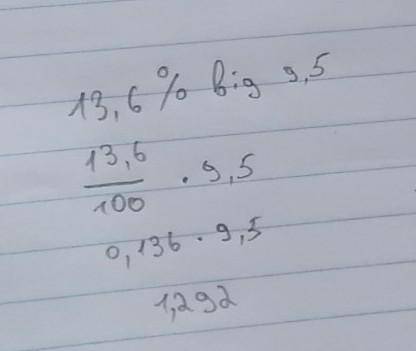 13,6% big 9,5
13,6
100 · 9,5
0,136 · 9,5
1,292